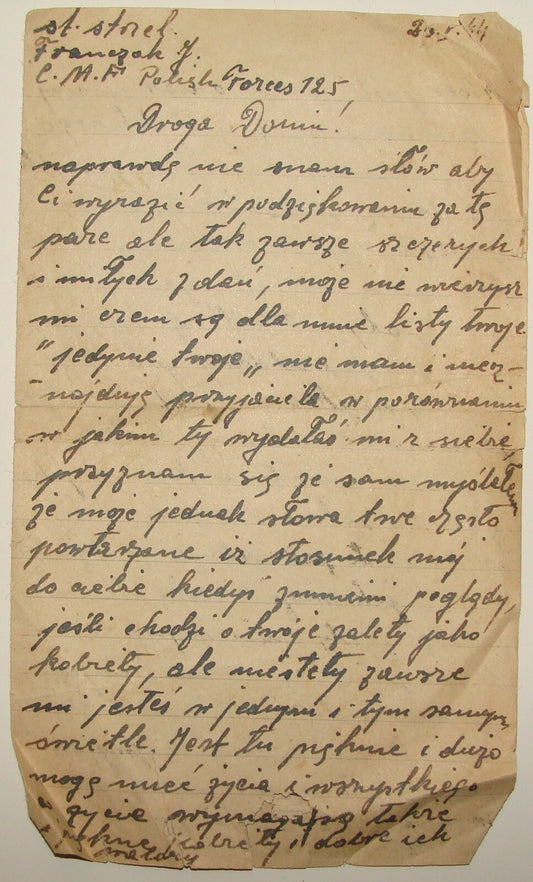 st. strzel.
Franczak J. 23.V.44
C.M.F Polish Forces 125
Droga Domin!
naprawdę nie znam słów aby
Ci wyrazić w podziękowaniu za tę
parę ale tak zawsze szczerych
i miłych zdań, może nie wierzysz
mi czem są dla mnie listy twoje
"jedynie twoje„ nie mam i niez-
-najduję przyjaciela w porównaniu
w jakim ty wydałaś mi z siebie,
przyznam się że sam myślałem
że może jednak słowa twe często
powtarzane iż stosunek mój
do ciebie kiedyś zmieni poglądy,
jeśli chodzi o twoje zalety jako
kobiety, ale niestety zawsze
mi jesteś w jednym i tym samym
świetle. Jest tu pięknie i dużo
mogę mieć życia i wszystkiego
życie wymagają także
piękne kobiety, i dobre ich